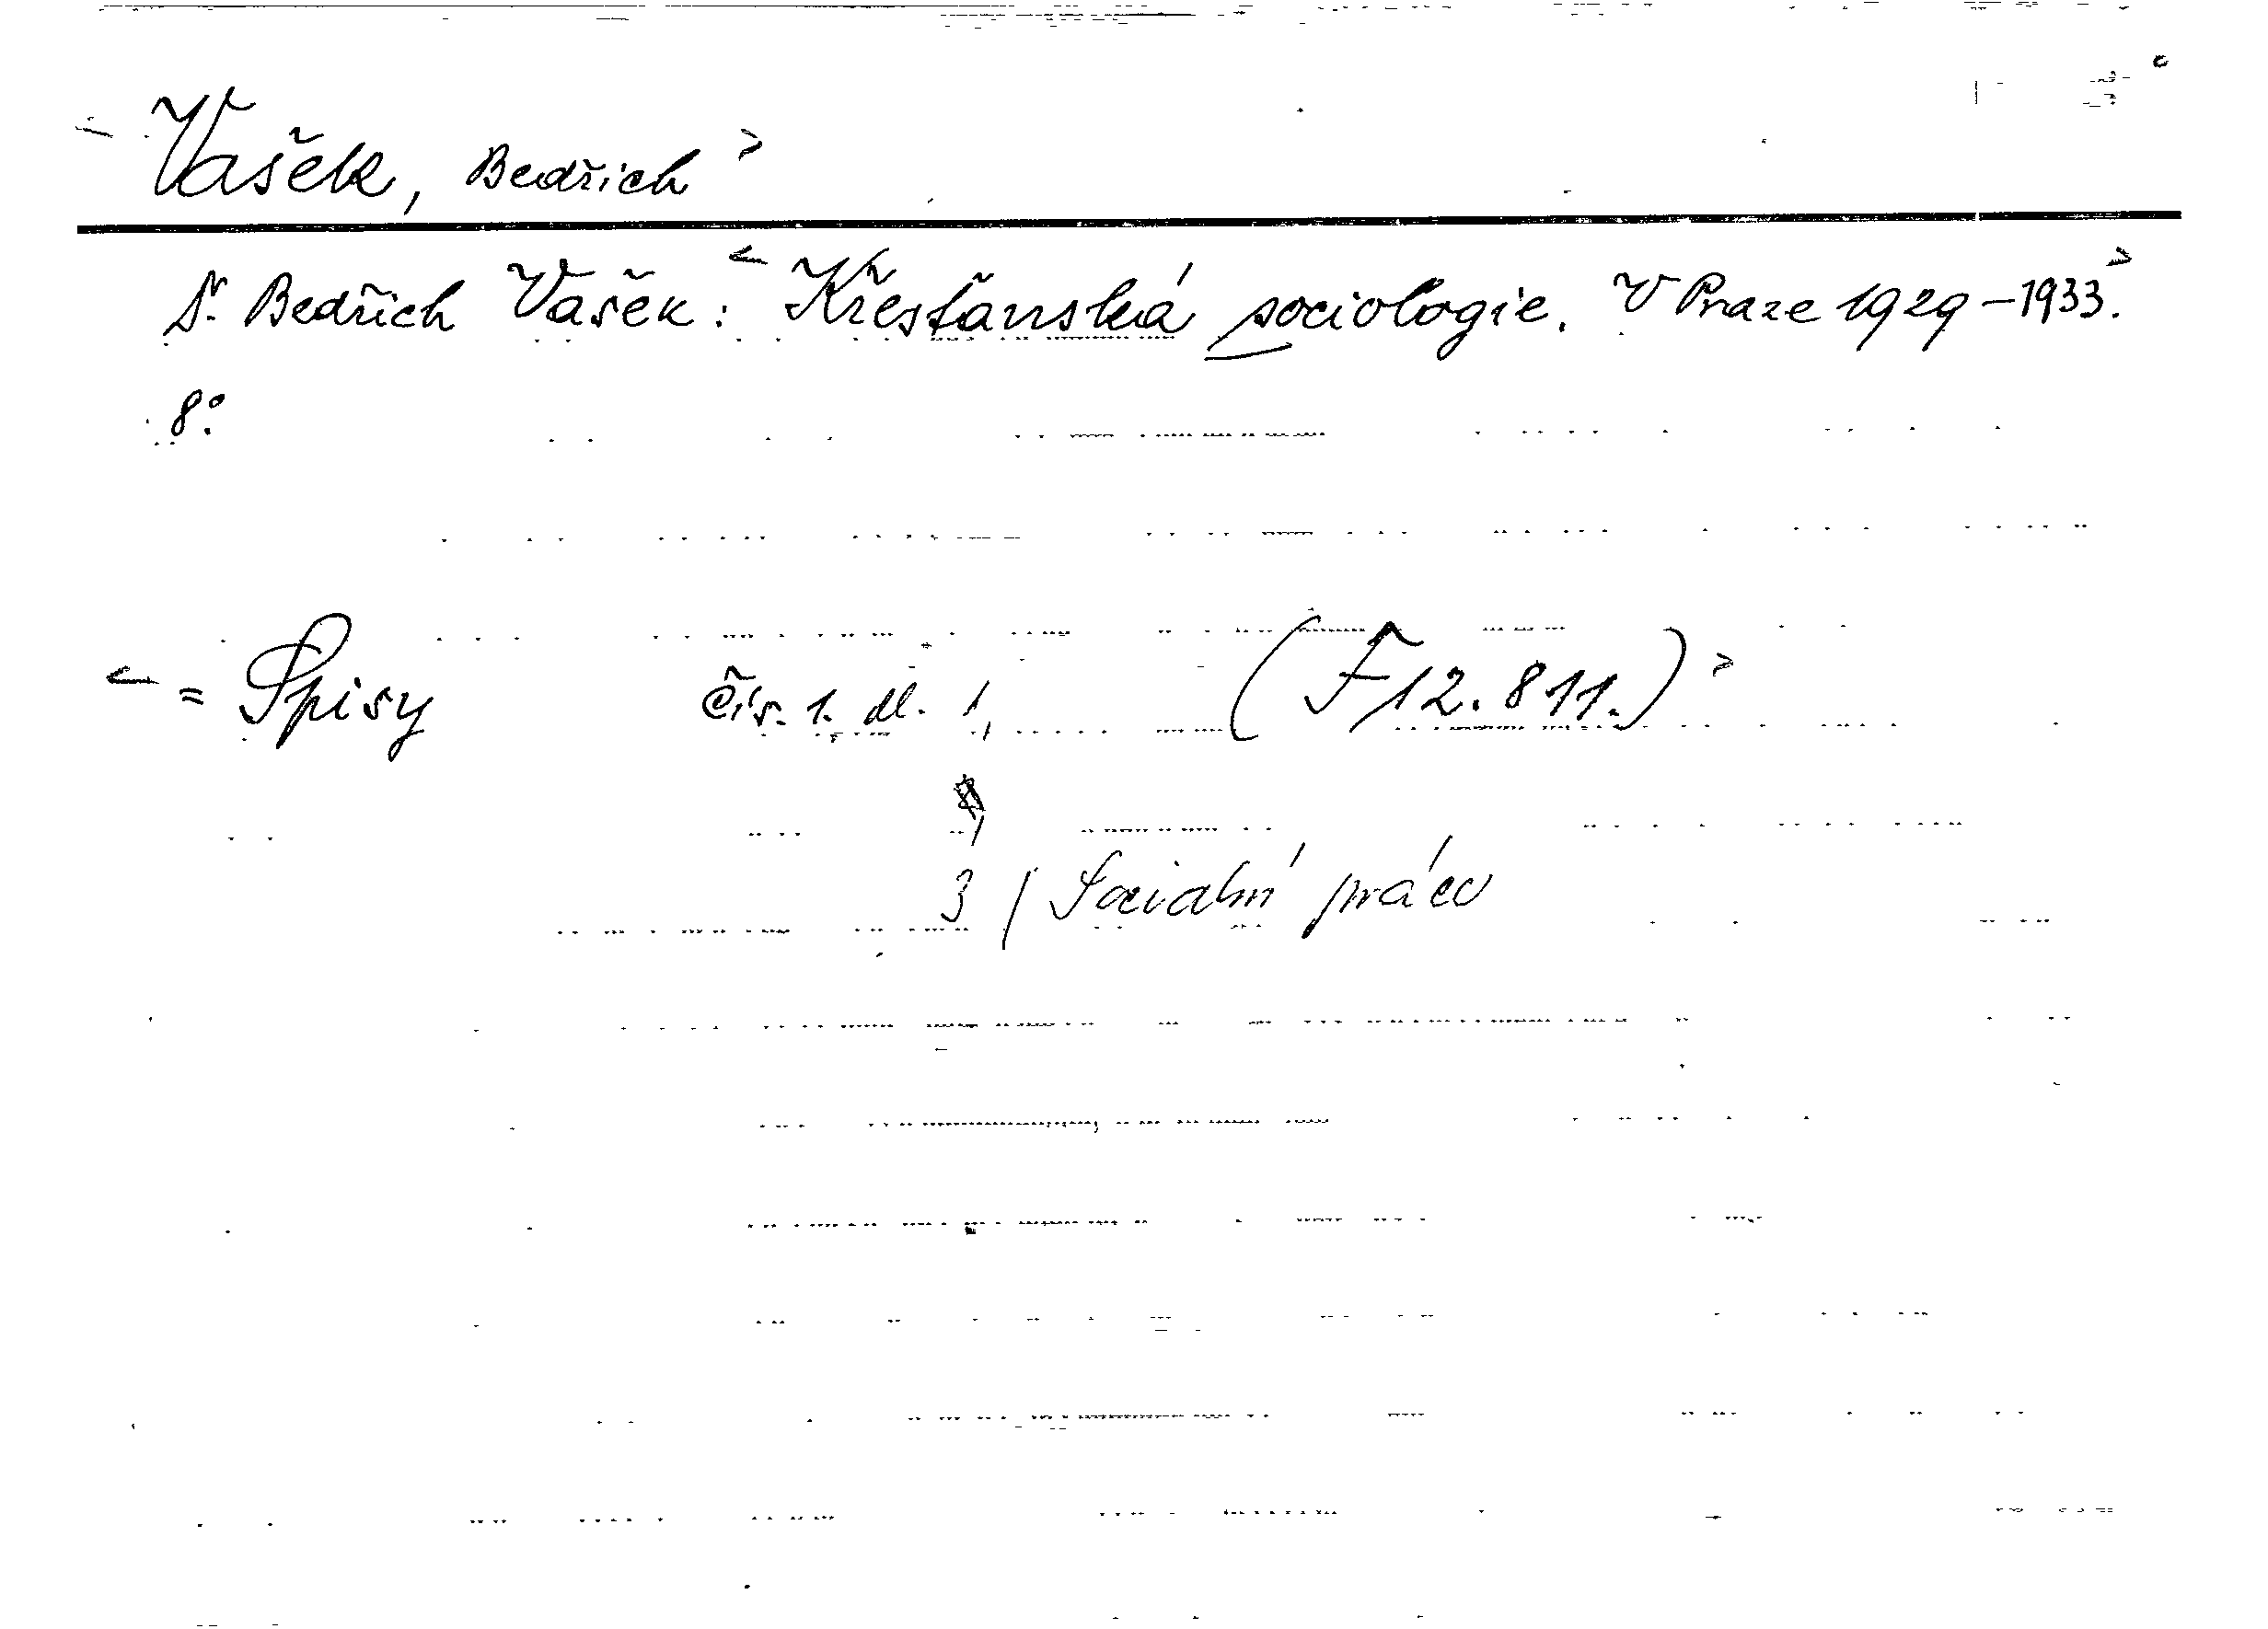 Vašek, Bedřich >
Dr. Bedřich Vašek: < Křesťanská sociologie. V Praze 1929-1933. >
8°.
< = Spisy čís. 1. dl. 1, (F 12.811.) >
3 / Sociální práce